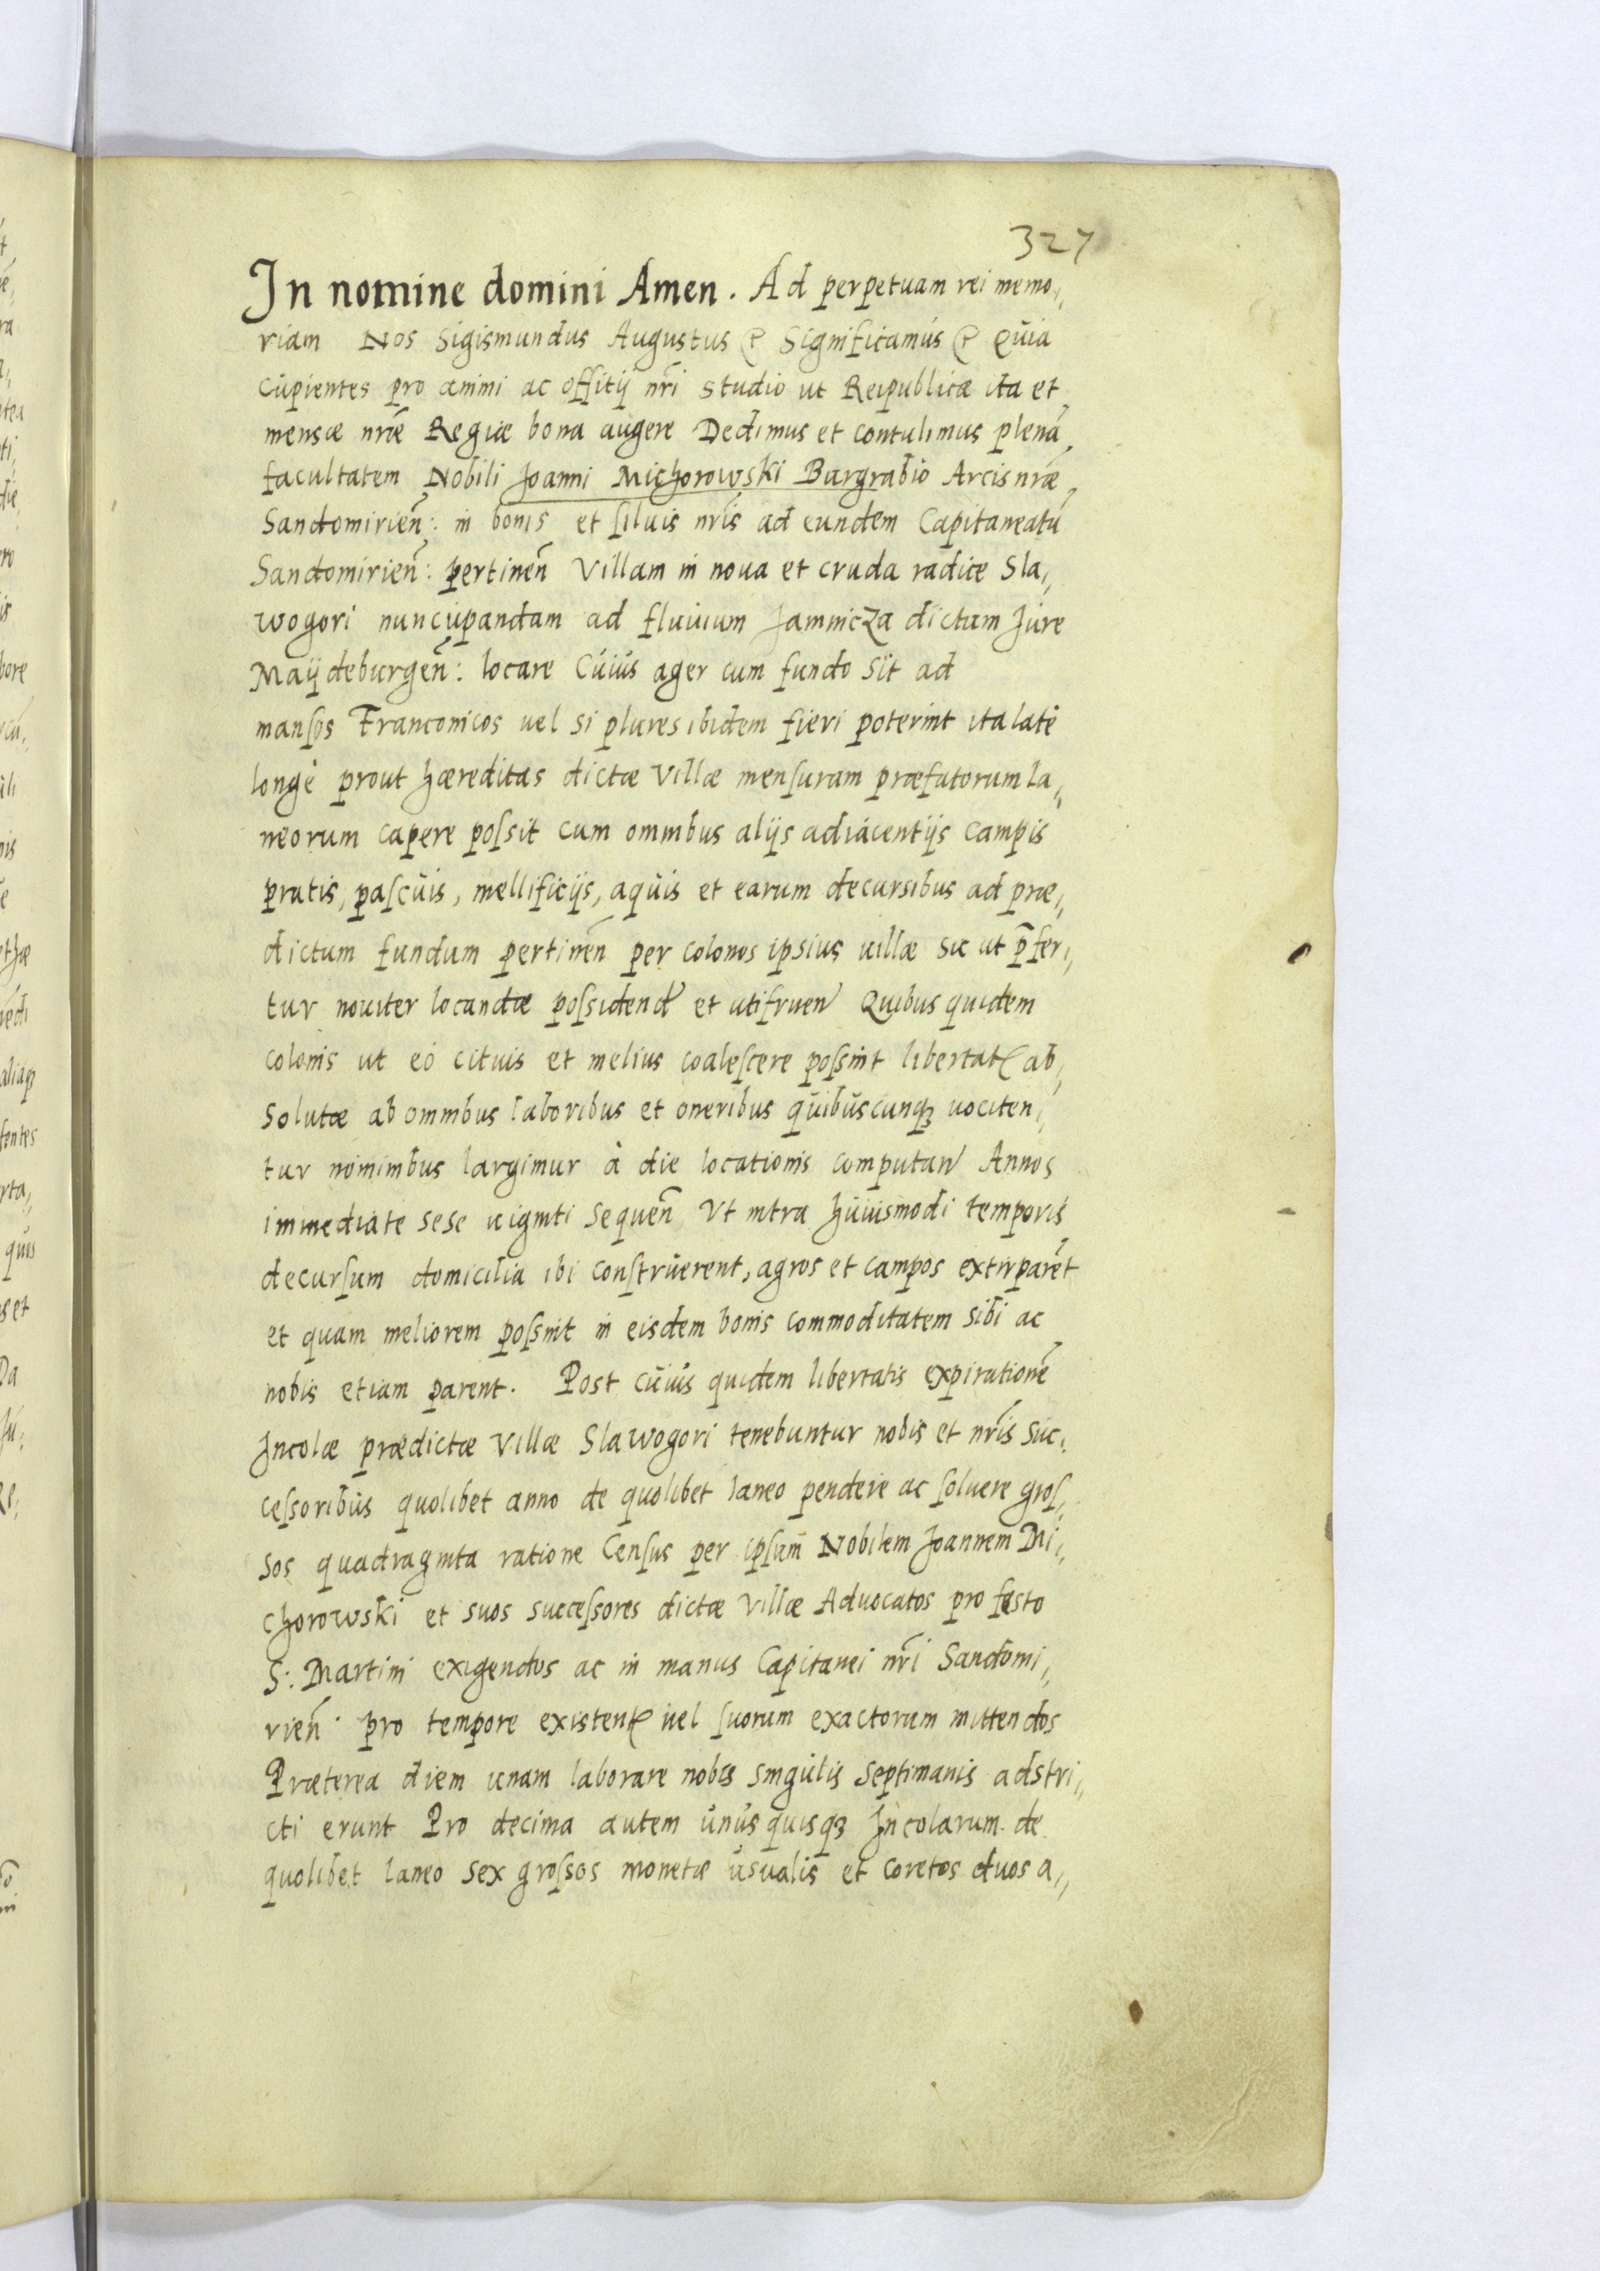 327
In nomine domini Amen. Ad perpetuam rei memo,,
riam Nos Sigismundus Augustus &c Significamus &c Quia
cupientes pro animi ac offitij nr̃i studio ut Reipublicæ ita et
mensæ nr̃æ Regiæ bona augere Dedimus et contulimus plenā
facultatem Nobili Joanni Michorowski Burgrabio Arcis nr̃æ
Sandomirien̄: in bonis et siluis nr̃is ad eundem Capitaneatū
Sandomirien̄: pertinen̄ Villam in noua et cruda radice Sla,,
wogori nuncupandam ad fluuium Jamnicza dictam Jure
Maijdeburgen̄: locare Cuius ager cum fundo sit ad
mansos Franconicos uel si plures ibidem fieri poterint ita latè
longè prout hæreditas dictæ Villæ mensuram præfatorum la,,
neorum capere possit cum omnibus alijs adiacentijs campis
pratis, pascuis, mellificijs, aquis et earum decursibus ad præ,,
dictum fundum pertinen̄ per colonos ipsius uillæ sic ut p̄fer,,
tur nouiter locandæ possidend et utifruen Quibus quidem
colonis ut eò cituis et melius coalescere possint libertatꝭ ab,,
solutæ ab omnibus laboribus et oneribus quibuscunqꝫ uociten,,
tur nominibus largimur à die locationis computan Annos
immediate sese uiginti sequen̄ Vt intra huiusmodi temporis
decursum domicilia ibi construerent, agros et campos extirparēt
et quam meliorem possint in eisdem bonis commoditatem sibi ac
nobis etiam parent. Post cuius quidem libertatis expirationē
Incolæ prædictæ Villæ Slawogori tenebuntur nobis et nr̃is suc,,
cessoribus quolibet anno de quolibet laneo pendere ac soluere gros,,
sos quadraginta ratione Census per ipsum Nobilem Joannem Mi,,
chorowski et suos successores dictæ Villæ Aduocatos pro festo
S: Martini exigendos ac in manus Capitanei nr̃i Sandomi,,
rien̄ pro tempore existentꝭ uel suorum exactorum mittendos
Præterea diem unam laborare nobis singulis septimanis adstri,,
cti erunt Pro decima autem unusquisqꝫ Incolarum de
quolibet laneo sex grossos monetæ usualis et coretos duos a,,